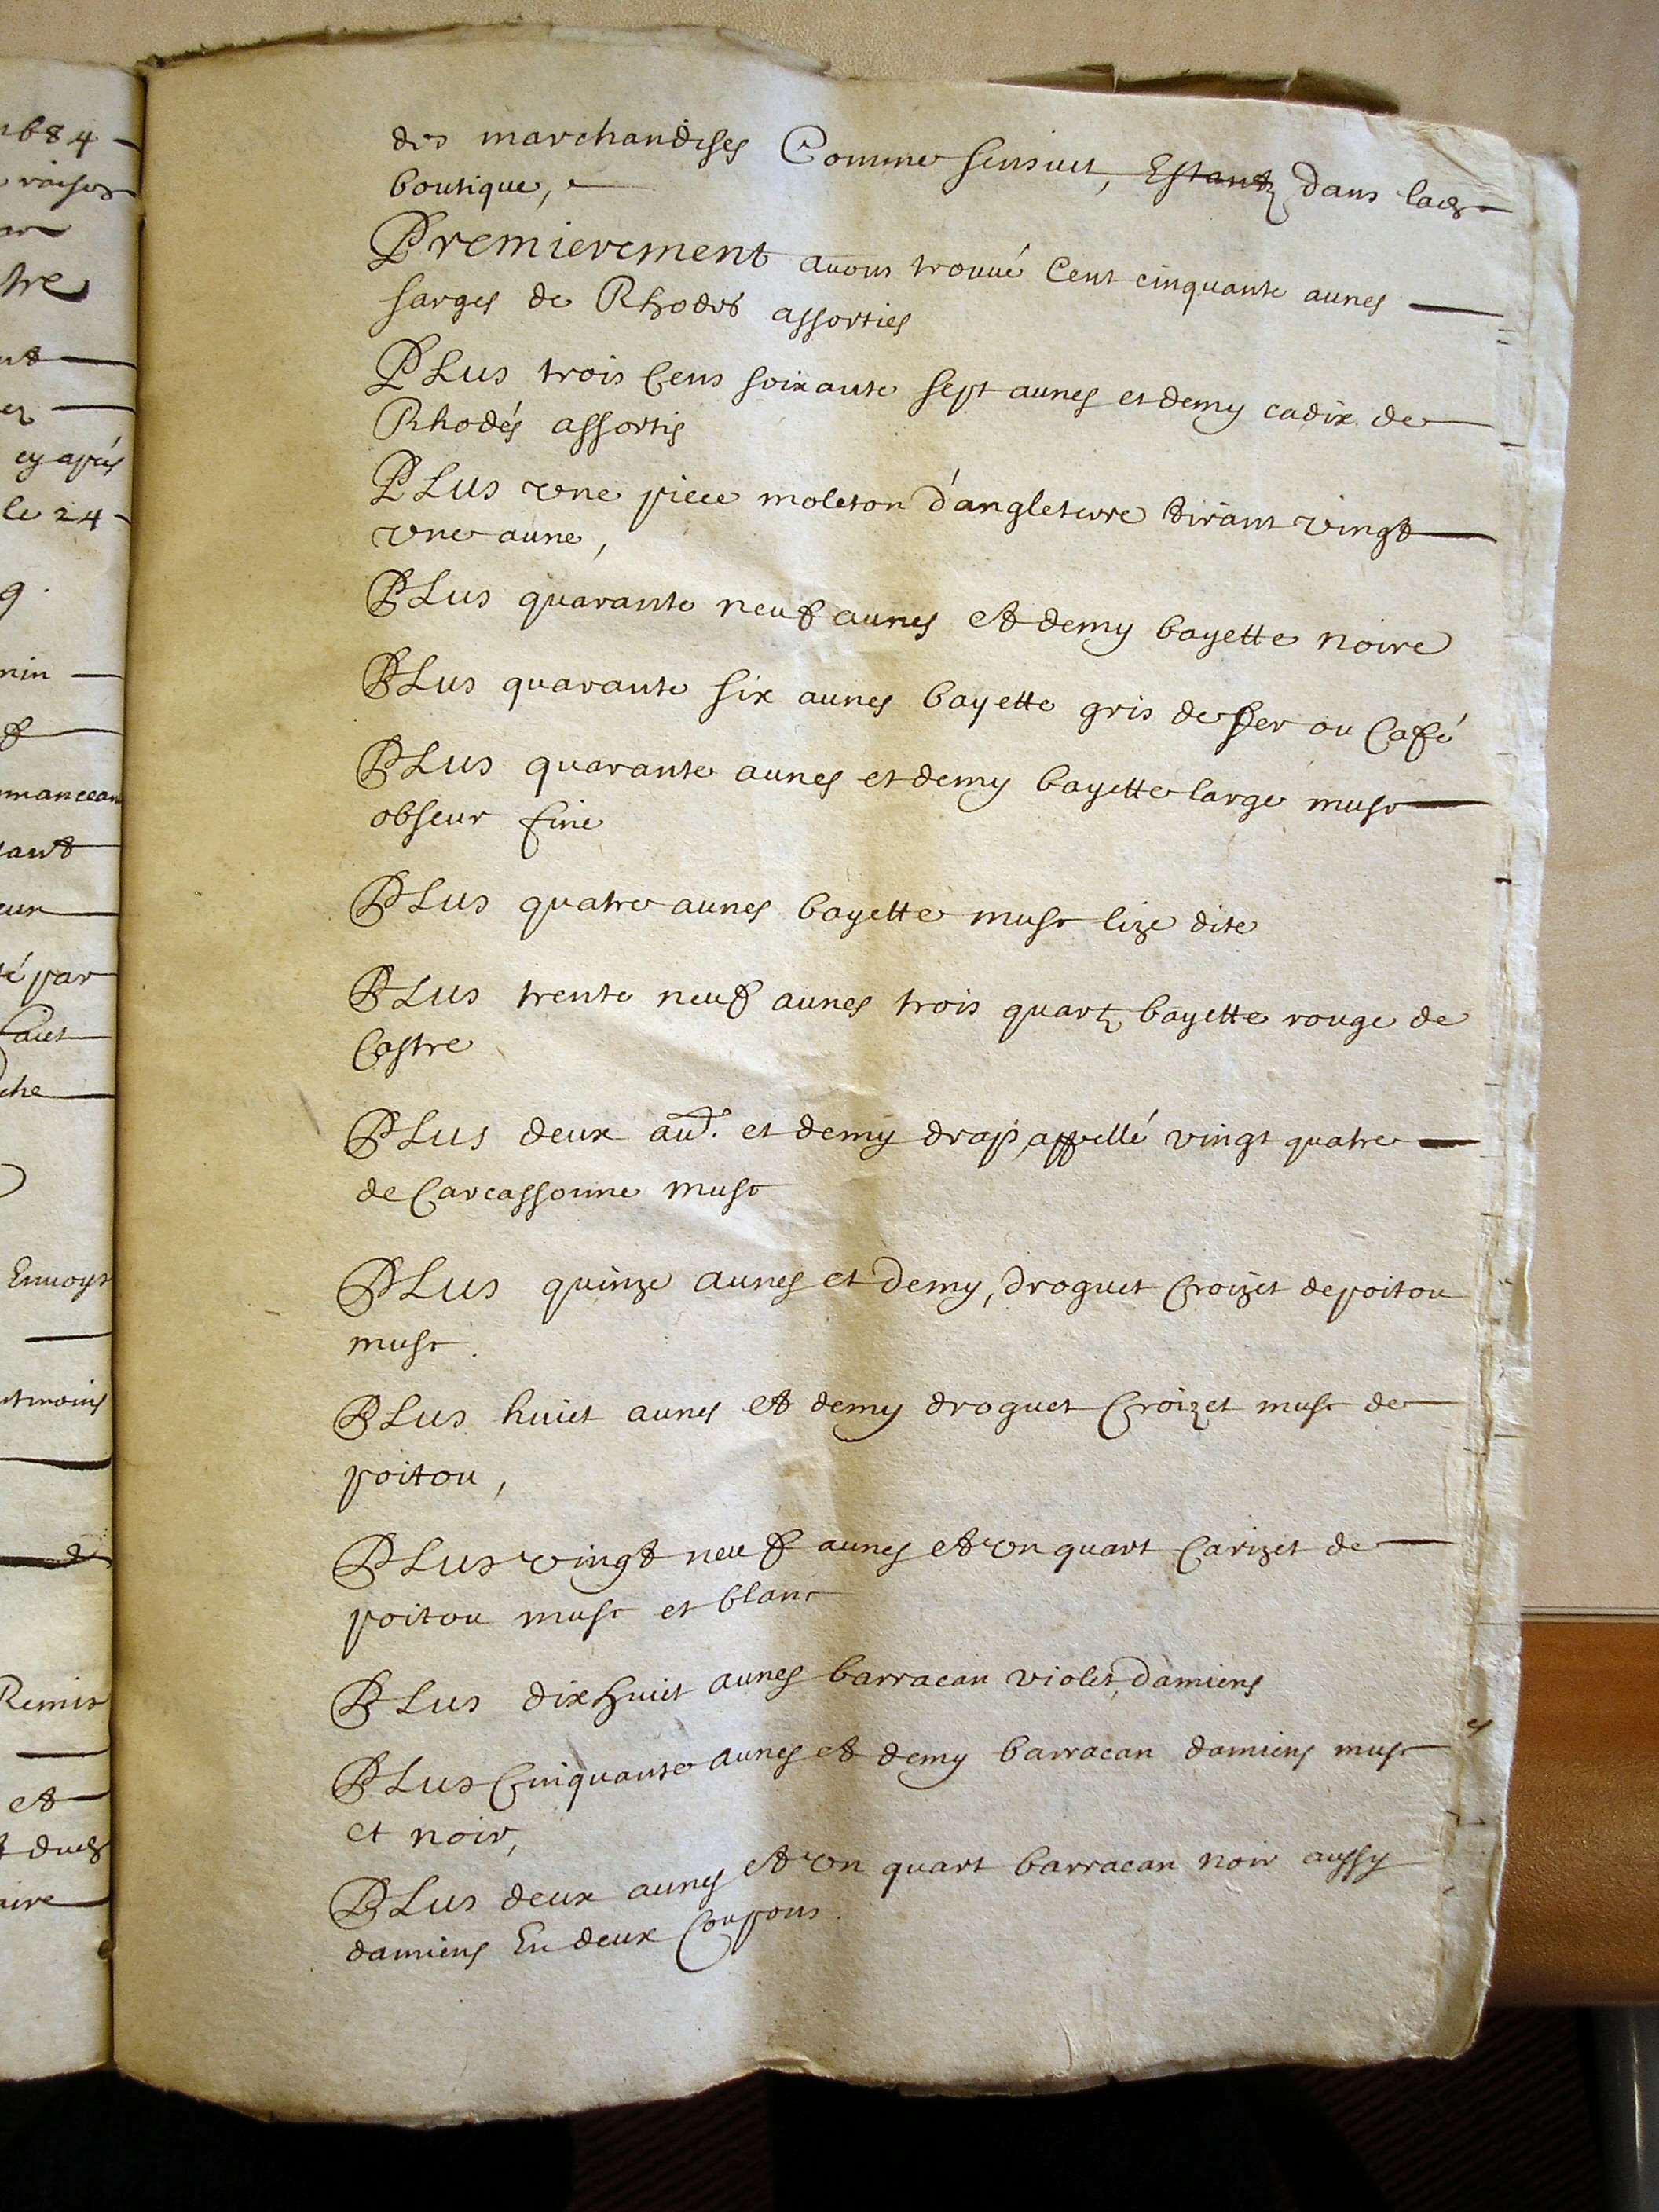 1684
raison
tre
cy apres
le 24
9.
manceau
par
faict
che
Envoye
moins
Remis
et
dud
aire
des marchandises Comme sensuit, Estantz dans lad
boutique,
Premierement auons trouué Cent cinquante aunes
sarges de Rhodes assorties
PLus trois Cens soixante sept aunes et demy cadix de
Rhodés assortis
PLus vne piece moleton d'angleterre tirant vingt
vne aune,
PLus quarante neuf aunes et demy bayette noire
PLus quarante six aunes bayette gris de fer ou Café
PLus quarante aunes et demy bayette large musc
obscur fine
PLus quatre aunes bayette musc lize dite
PLus trente neuf aunes trois quartz bayette rouge de
Castre
PLus deux au. et demy drap, appellé vingt quatre
de Carcassonne musc
PLus quinze aunes et demy, droguet Croizet de poitou
musc.
PLus huict aunes et demy droguet Croizet musc de
poitou,
PLus vingt neuf aunes et vn quart Carizet de
poitou musc et blanc
PLus dix huict aunes barracan violet, damiens
PLus Cinquante aunes et demy barracan damiens musc
et noir,
PLus deux aunes et vn quart barracan noir aussy
damiens En deux Coupons.